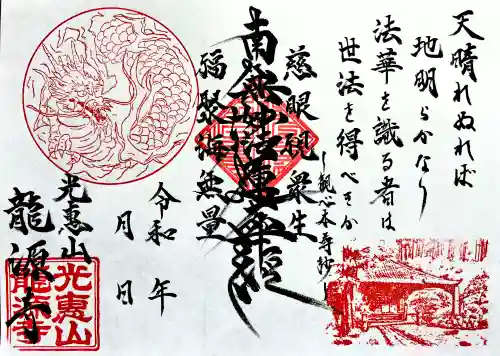 天晴れぬれば
地明らかなり
法華を識る者は
世法を得べきか
―観心本尊抄―
慈眼視衆生
南無妙法蓮華経
福聚海無量
令和 年
月 日
光恵山
龍源寺
光恵山
龍源寺